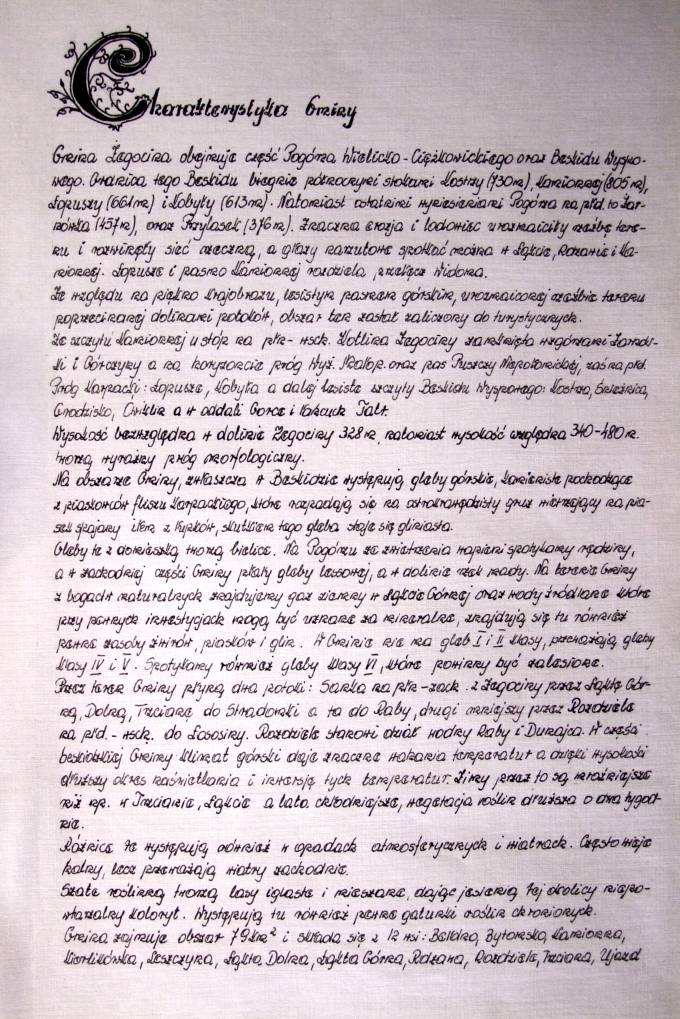 Charakterystyka Gminy
Gmina Żegocina obejmuje część Pogórza Wielicko-Ciężkowickiego oraz Beskidu Wyspo-
wego. Granica tego Beskidu biegnie północnymi stokami Kostrzy (730m), Kamionnej (805m),
Łopuszy (661m) i Kobyły (613m). Natomiast ostatnimi wzniesieniami Pogórza na płd. to Żar-
nówka (457m), oraz Przylasek (376m). Znaczna erozja i lodowiec urozmaiciły rzeźbę tere-
nu i rozwinęły sieć rzeczną, a głazy narzutowe spotkać można w Łąkcie, Rozdzielu i Ka-
mionnej. Łopusze i pasmo Kamionnej rozdziela przełęcz Widoma.
Ze względu na piękno krajobrazu, lesistym pasmem górskim, urozmaiconej rzeźbie terenu
poprzecinanej dolinami potoków, obszar ten został zaliczony do turystycznych.
Ze szczytu Kamionnej u stóp na płn-wsch. Kotlina Żegociny zamknięta wzgórzami
ki i Górczyny a na horyzoncie próg Wyż. Małop. oraz pas Puszczy Niepołomickiej, zaś na płd.
Próg Karpacki: Łopusze, Kobyła a dalej lesiste szczyty Beskidu Wyspowego: Kostrza, Śnieżnica,
Grodzisko, Ćwilin a w oddali Gorce i łańcuch Tatr.
Wysokość bezwzględna w dolinie Żegociny 328m, natomiast wysokość względna 340-480m.
tworzą wyraźny próg morfologiczny.
Na obszarze Gminy, zwłaszcza w Beskidzie występują gleby górskie, kamieniste pochodzące
z piaskowców fliszu karpackiego, które rozpadają się na ostrokrawędzisty gruz wietrzejący na pia-
sek spojony iłem z łupków, skutkiem tego gleba staje się gliniasta.
Gleby te z domieszką tworzą bielice. Na Pogórzu ze zwietrzenia wapieni spotykamy rędziny,
a w zachodniej części Gminy płaty gleby lessowej, a w dolinie rzek mady. Na terenie Gminy
z bogactw naturalnych znajdujemy gaz ziemny w Łąkcie Górnej oraz wody źródlane które
przy pewnych inwestycjach mogą być uznane za mineralne, znajdują się tu również
pewne zasoby żwirów, piasków i glin. W Gminie nie ma gleb I i II klasy, przeważają gleby
klasy IV i V. Spotykamy również gleby klasy VI, które powinny być zalesione.
Przez teren Gminy płyną dwa potoki: Sanka na płn-zach. z Żegociny przez Łąktę Gór-
ną, Dolną, Trzcianę do Stradomki a ta do Raby, drugi mniejszy przez Rozdziele
na płd.-wsch. do Łososiny. Rozdziele stanowi dział wodny Raby i Dunajca. W części
beskidzkiej Gminy klimat górski daje znaczne wahania temperatur a dzięki wysokości
dłuższy okres naświetlania i inwersję tych temperatur. Zimy przez to są mroźniejsze
niż np. w Trzcianie, Łąkcie a lata chłodniejsze, wegetacja roślin dłuższa o dwa tygod-
nie.
Różnice te występują również w opadach atmosferycznych i wiatrach. Często wieje
halny, lecz przeważają wiatry zachodnie.
Szatę roślinną tworzą lasy iglaste i mieszane, dając jesienią tej okolicy niepo-
wtarzalny koloryt. Występują tu również pewne gatunki roślin chronionych.
Gmina zajmuje obszar 79km² i składa się z 12 wsi: Bełdno, Bytomsko, Kamionna,
Kierlikówka, Leszczyna, Łąkta Dolna, Łąkta Górna, Rdzawa, Rozdziele, Trzciana, Ujazd